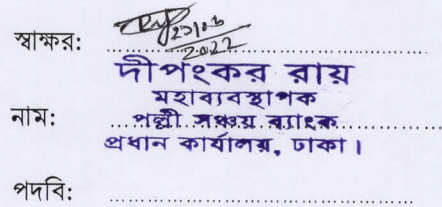 স্বাক্ষর:
2022
দীপংকর রায়
মহাব্যবস্থাপক
নাম: পল্লী সঞ্চয় ব্যাংক
প্রধান কার্যালয়, ঢাকা।
পদবি: